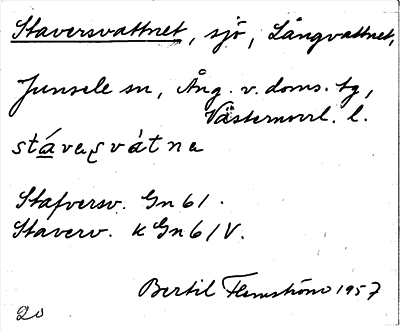 Staversvattnet, sjö, Långvattnet,
Junsele sn, Ång. v. doms. tg,
Västernorrl. l.
stávaʂvátna
Stafversv. Gn 61.
Staverv. k Gn 61 V.
Bertil Flemström 1957
20